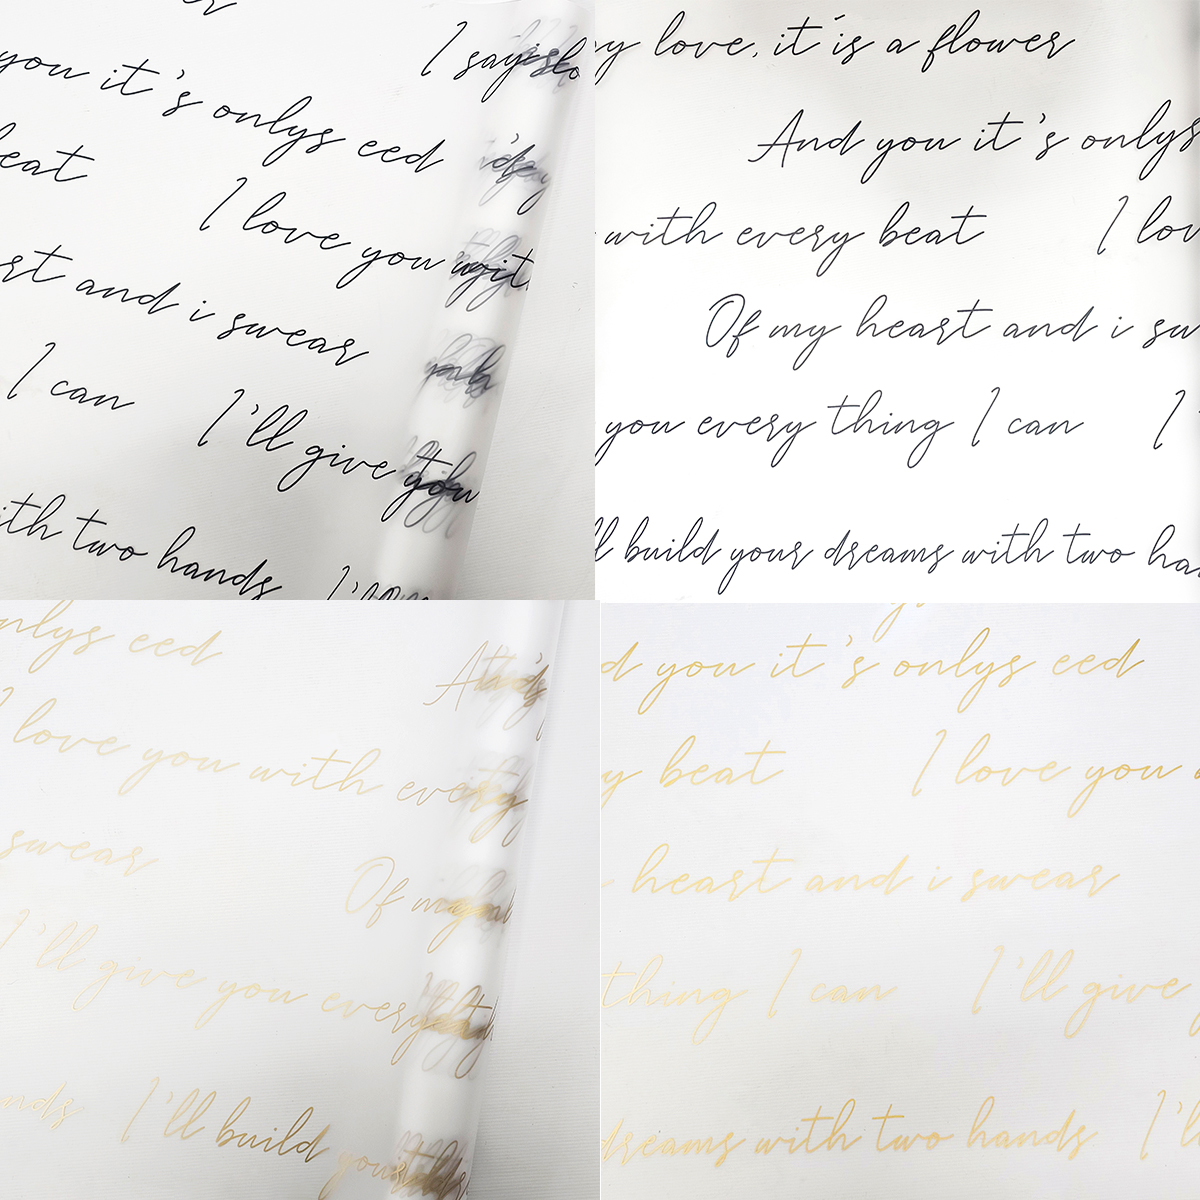 I say
you it's onlys eed
beat
I love you wit
art and i swear
I can I'll give you
ith two hands I'll
y love, it is a flower
And you it's onlys
with every beat I lov
Of my heart and i sw
you every thing I can I
ll build your dreams with two han
nlys eed
I love you with every
swear
Of my
I'll give you every
ands I'll build your
d you it's onlys eed
y beat I love you
heart and i swear
thing I can I'll give y
dreams with two hands I'll